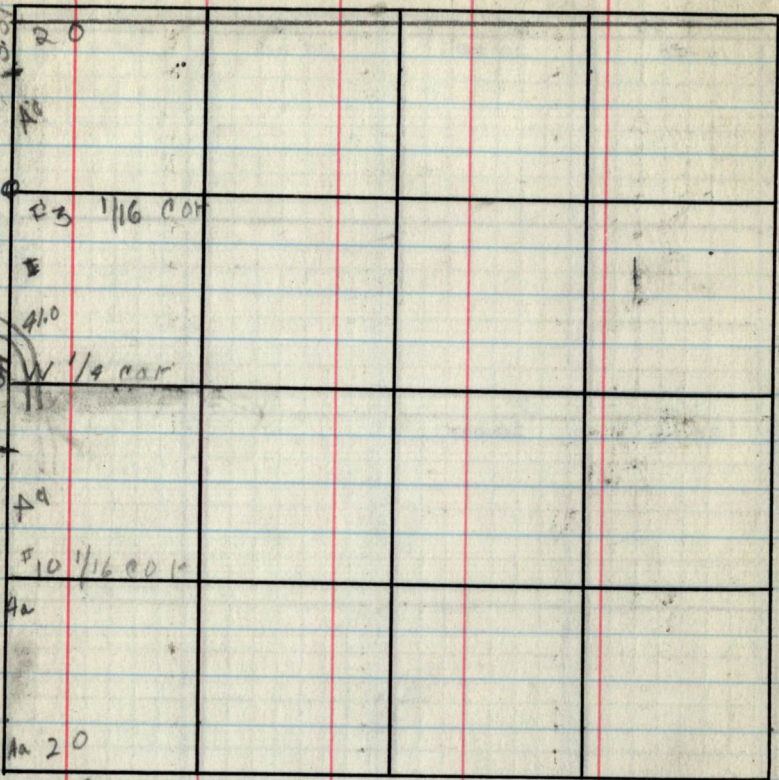 20
#3 1/16 cor
41.0
W 1/4 cor
#10 1/16 cor
Aa
Aa 20